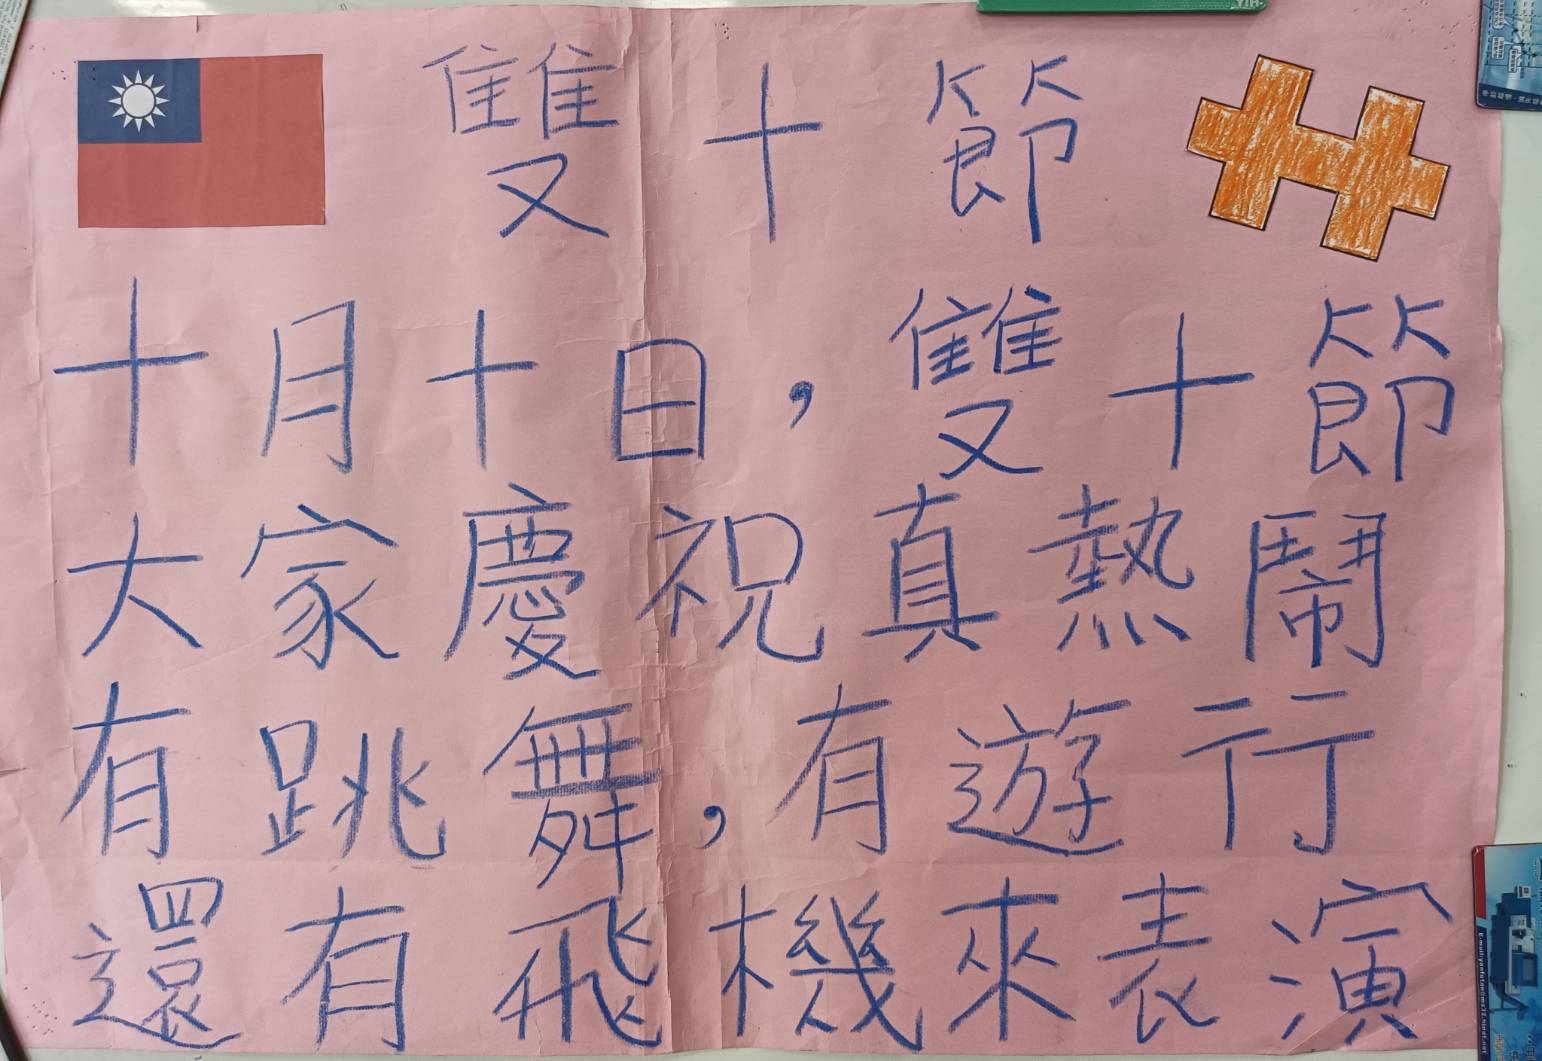 雙十節
十月十日，雙十節
大家慶祝真熱鬧
有跳舞，有遊行
還有飛機來表演